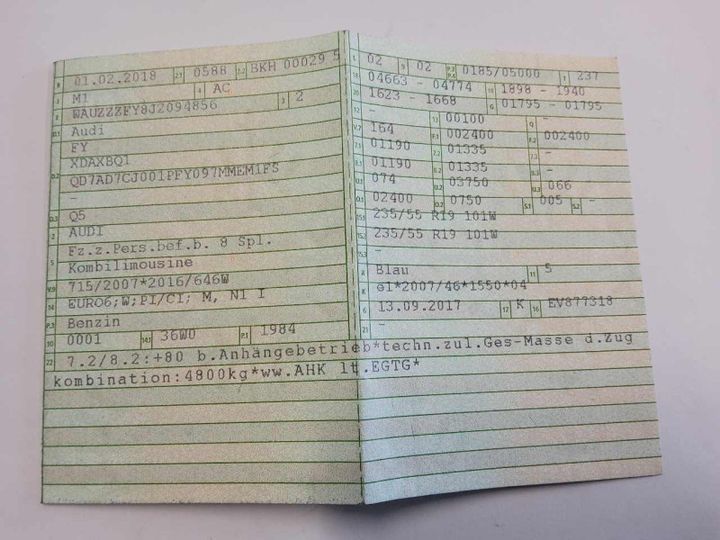 B 01.02.2018 2.1 0588 2.2 BKH 00029 5
J M1 4 AC
E WAUZZZFY8J2094856 3 2
D.1 Audi
FY
D.2 XDAXBQ1
QD7AD7CJ001PFY097MMEM1FS
-
D.3 Q5
2 AUDI
5 Fz.z.Pers.bef.b. 8 Spl.
Kombilimousine
V.9 715/2007*2016/646W
14 EURO6;W;PI/CI; M, N1 I
P.3 Benzin
10 0001 14.1 36W0 P.1 1984
22 7.2/8.2:+80 b.Anhängebetrieb*techn.zul.Ges-Masse d.Zug
kombination:4800kg*ww.AHK lt.EGTG*
L 02 9 02 P.2 P.4 0185/05000 T 237
18 04663 - 04774 19 1898 - 1940
20 1623 - 1668 G 01795 - 01795
12 - 13 00100 Q -
V.7 164 F.1 002400 F.2 002400
7.1 01190 7.2 01335 7.3 -
8.1 01190 8.2 01335 8.3 -
U.1 074 U.2 03750 U.3 066
O.1 02400 O.2 0750 S.1 005 S.2 -
15.1 235/55 R19 101W
15.2 235/55 R19 101W
15.3 -
R Blau 11 5
K e1*2007/46*1550*04
6 13.09.2017 17 K 16 EV877318
21 -